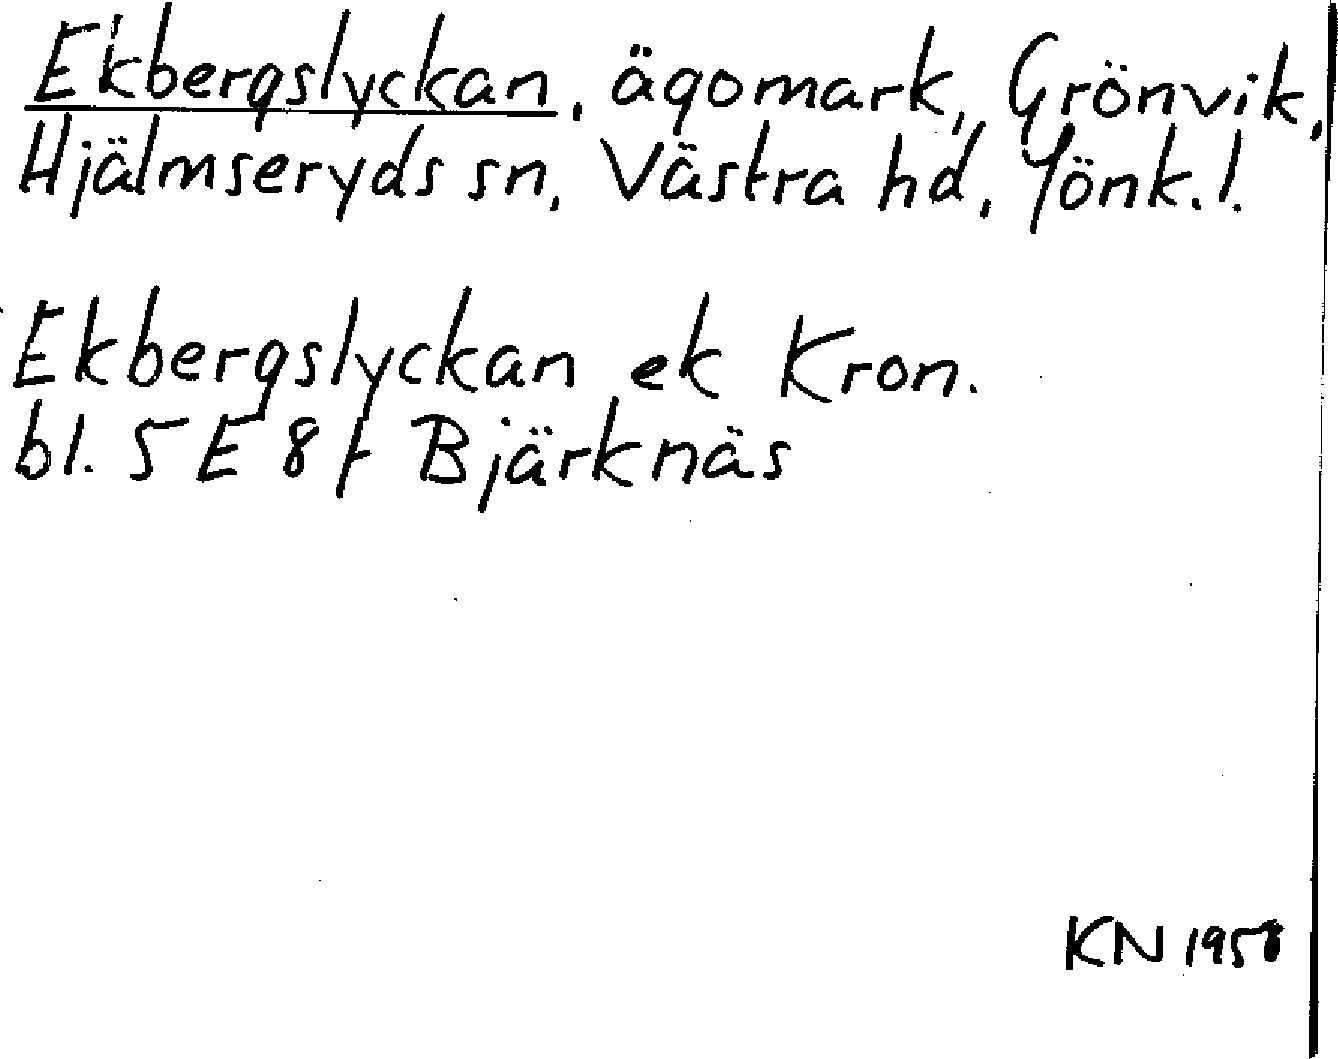 Ekbergslyckan, ägomark, Grönvik,
Hjälmseryds sn, Västra hd, Jönk.l.
Ekbergslyckan ek Kron.
bl. 5 E 8 f Bjärknäs
KN 1958